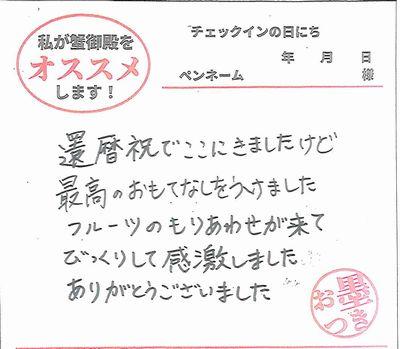 私が蟹御殿を
オススメ
します！
チェックインの日にち
年 月 日
ペンネーム 様
還暦祝でここにきましたけど
最高のおもてなしをうけました
フルーツのもりあわせが来て
びっくりして感激しました
ありがとうございました
お墨つき